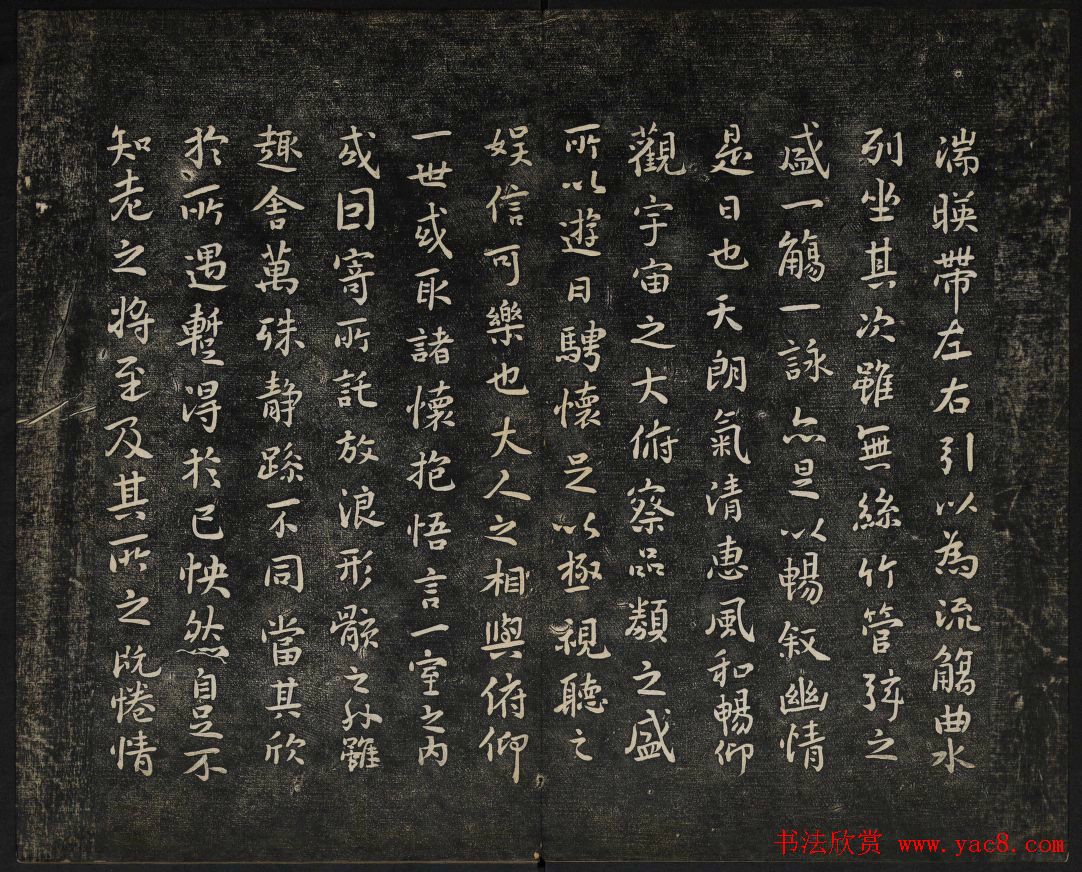 湍暎帶左右引以為流觴曲水
列坐其次雖無絲竹管弦之
盛一觴一詠亦足以暢叙幽情
是日也天朗氣清惠風和暢仰
觀宇宙之大俯察品類之盛
所以遊目騁懷足以極視聽之
娱信可樂也大人之相與俯仰
一世或取諸懷抱悟言一室之内
或因寄所託放浪形骸之外雖
趣舍萬殊静躁不同當其欣
於所遇暫得於己怏然自足不
知老之將至及其所之既惓情
书法欣赏 www.yac8.com